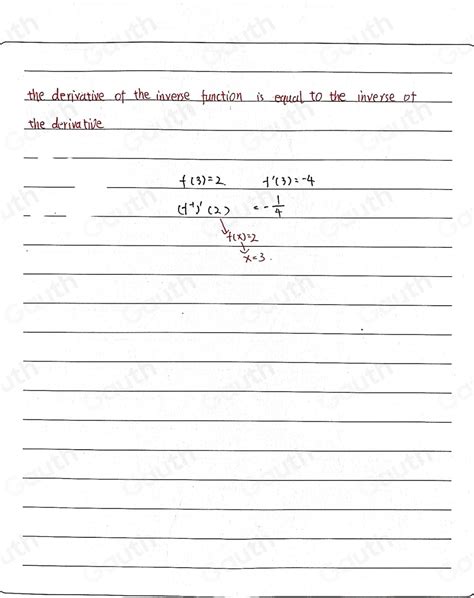 the derivative of the inverse function is equal to the inverse of
the derivative
f(3)=2 f'(3)=-4
(f⁻¹)'(2) =-1/4
f(x)=2
x=3.